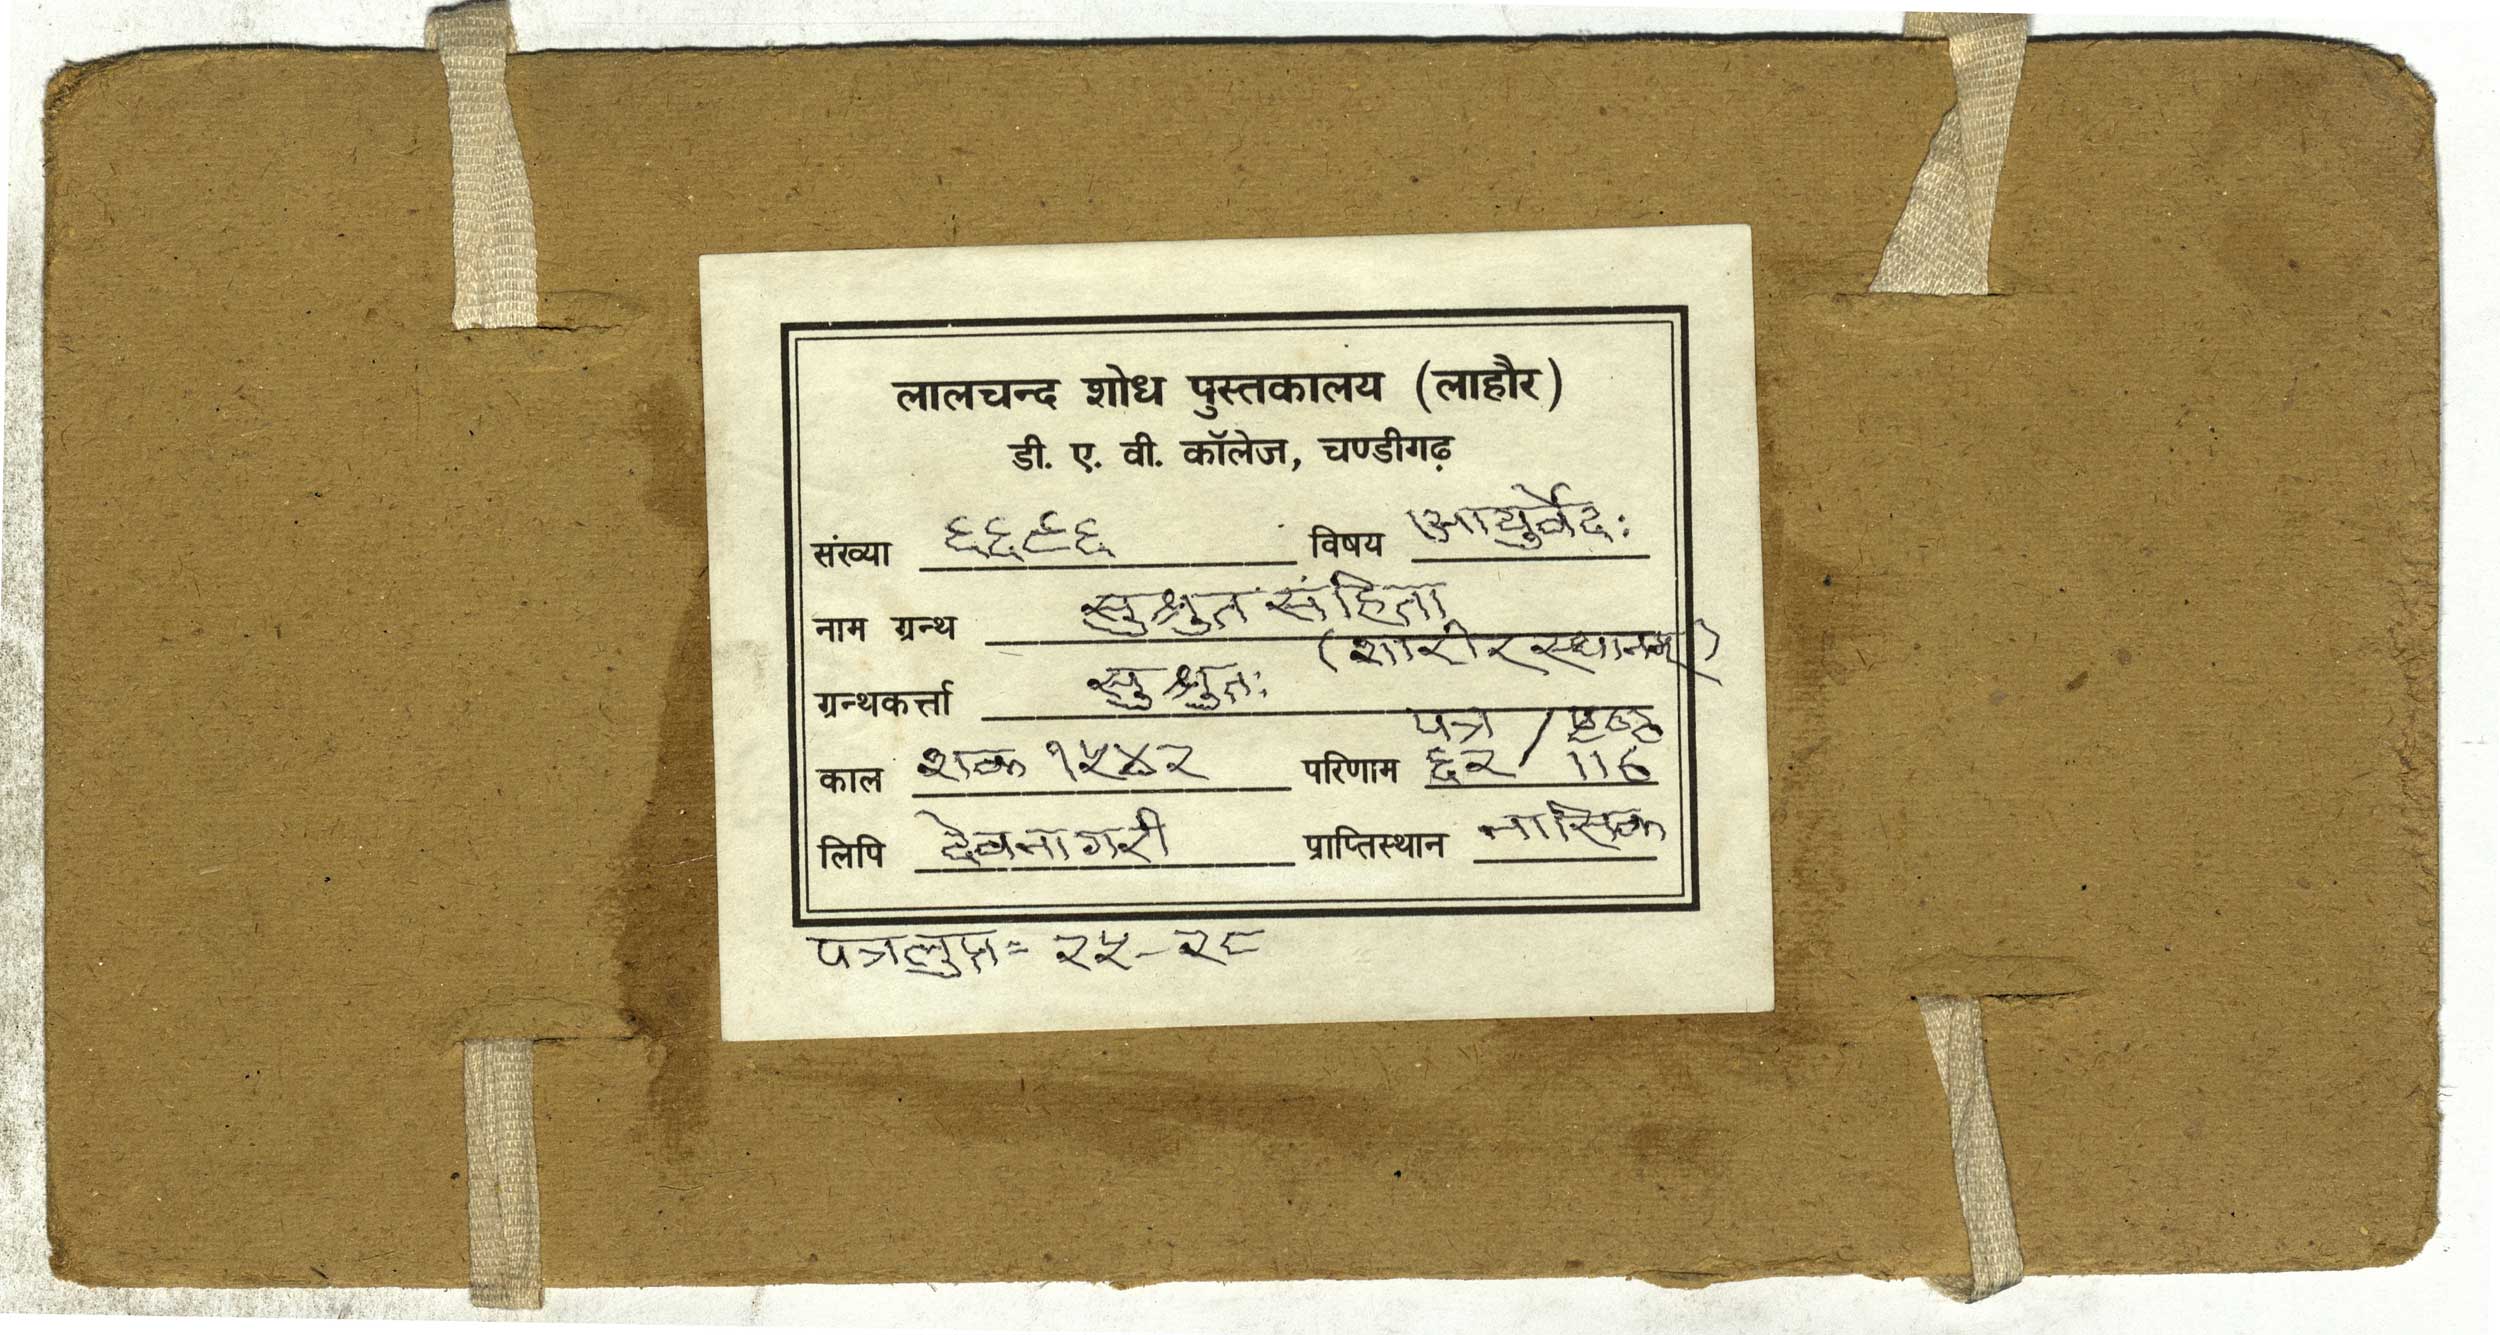 लालचन्द शोध पुस्तकालय (लाहौर)
डी. ए. वी. कॉलेज, चण्डीगढ़
संख्या ६६९६ विषय आयुर्वेदः
नाम ग्रन्थ सुश्रुत संहिता
(शारीर स्थानम्)
ग्रन्थकर्त्ता सुश्रुतः
पत्र / पृष्ठ
काल शक १५४२ परिणाम ६२ / 116
लिपि देवनागरी प्राप्तिस्थान नासिक
पत्रलुप्त = २५-२८